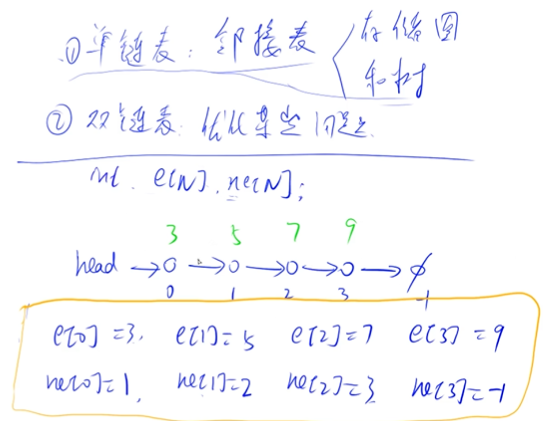 ① 单链表：邻接表
存储图
和树
② 双链表：优化某些问题
int e[N], ne[N];
3 5 7 9
head → o → o → o → o → ∅
0 1 2 3 -1
e[0] = 3, e[1] = 5 e[2] = 7 e[3] = 9
ne[0] = 1, ne[1] = 2 ne[2] = 3 ne[3] = -1